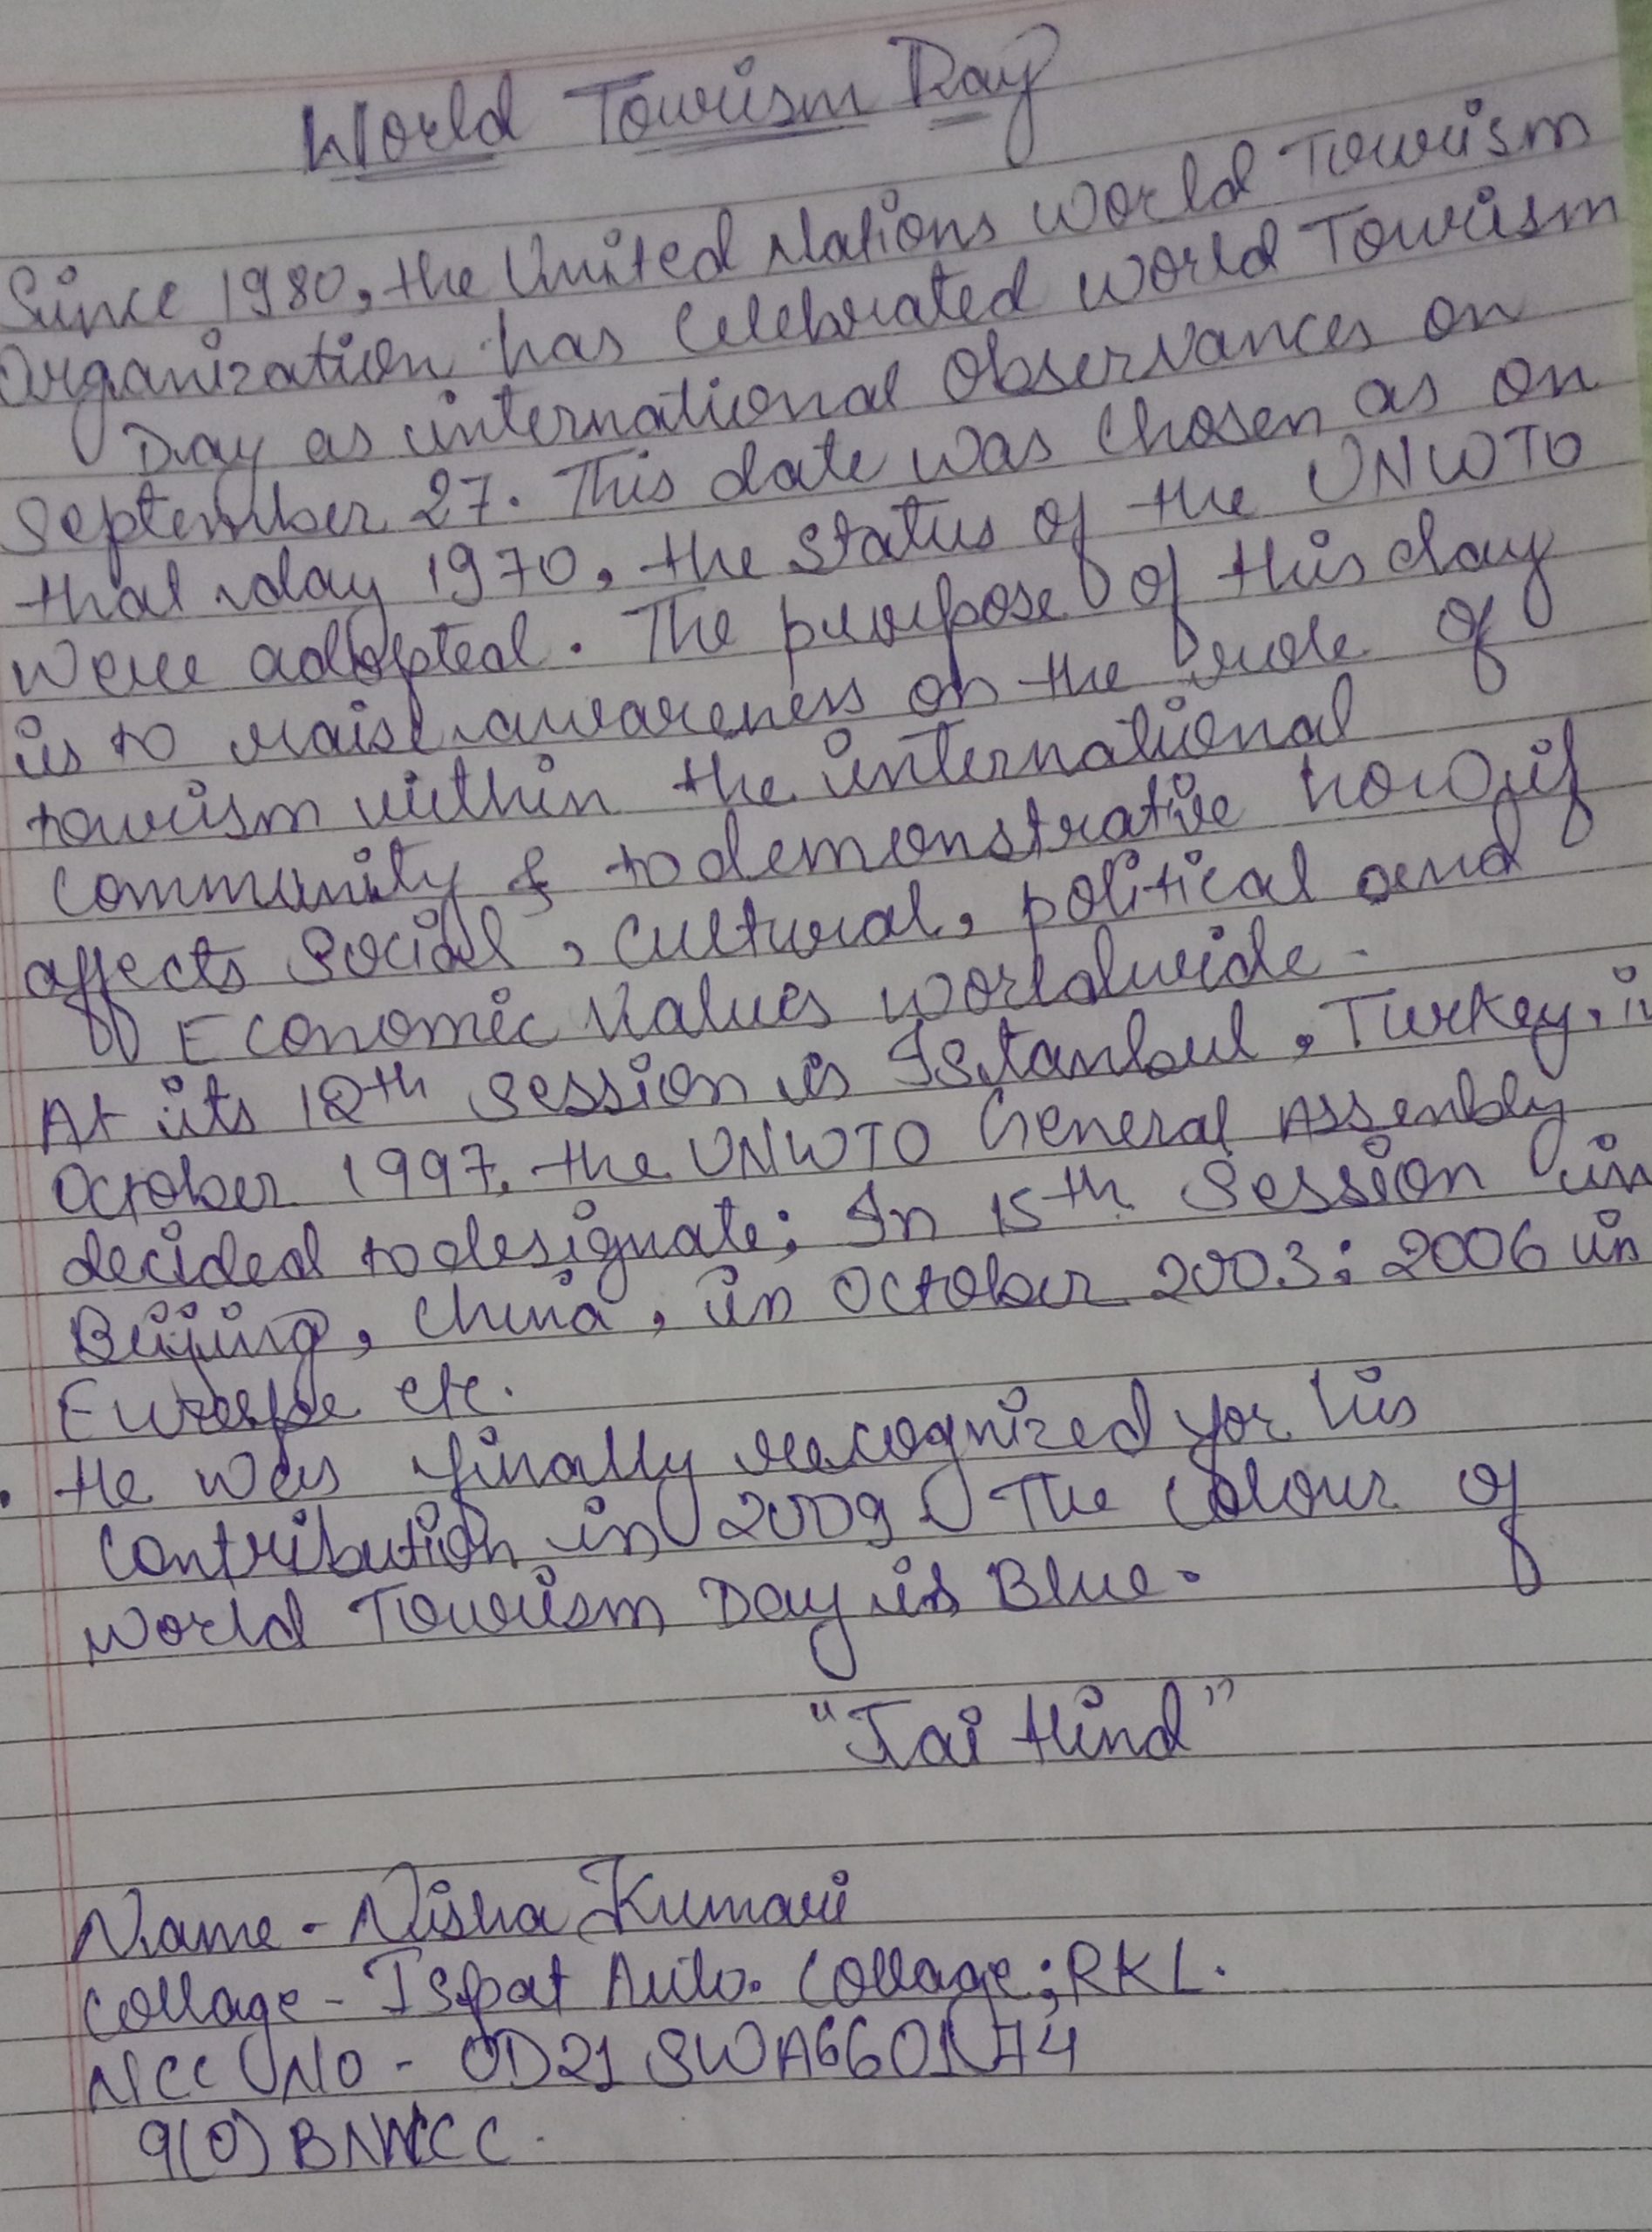 World Tourism Day
Since 1980, the United Nations World Tourism
Organization has Celebrated World Tourism
Day as international Observances on
September 27. This date was Chosen as on
that day 1970, the Status of the UNWTO
were adopted. The purpose of this day
is to raise awareness on the role of
tourism within the international
Community & to demonstrative how if
affects Social, Cultural, political and
Economic Values worldwide.
At its 12th Session is Istanbul, Turkey, in
October 1997, the UNWTO General Assembly
decided to designate; In 15th Session in
Beijing, China, in October 2003; 2006 in
Europe etc.
• He was finally recognized for his
Contribution in 2009. The Colour of
World Tourism Day is Blue.
"Jai Hind"
Name - Nisha Kumari
Collage - Ispat Auto. Collage; RKL.
NCC NO - OD21SWA6601
9(O) BNNCC.